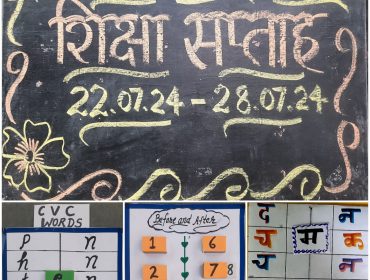 शिक्षा सप्ताह
22.07.24 - 28.07.24
CVC
WORDS
p n
h n
t e n
Before and After
1 6
2 7 8
द न
च म क
त